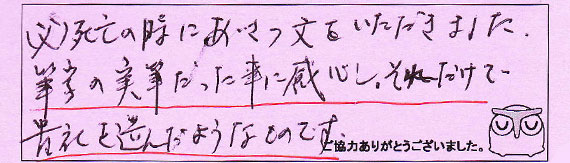 父死亡の時にあいさつ文をいただきました。
筆字の実筆だった事に感心し、それだけで
貴社を選んだようなものです。
ご協力ありがとうございました。